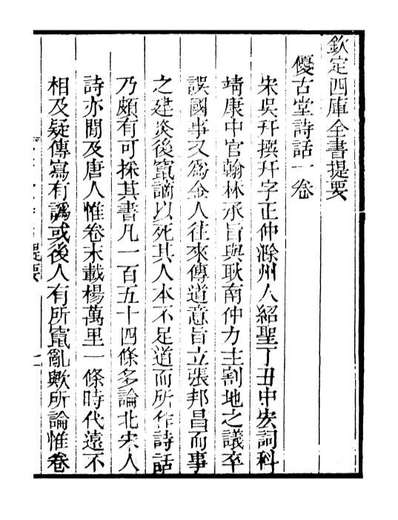 欽定四庫全書提要
優古堂詩話一卷
宋吳幵撰幵字正仲滁州人紹聖丁丑中宏詞科
靖康中官翰林承旨與耿南仲力主割地之議卒
誤國事又為金人往來傳道意旨立張邦昌而事
之建炎後竄謫以死其人本不足道而所作詩話
乃頗有可採其書凡一百五十四條多論北宋人
詩亦間及唐人惟卷末載楊萬里一條時代遠不
相及疑傳寫有譌或後人有所竄亂歟所論惟卷
提要